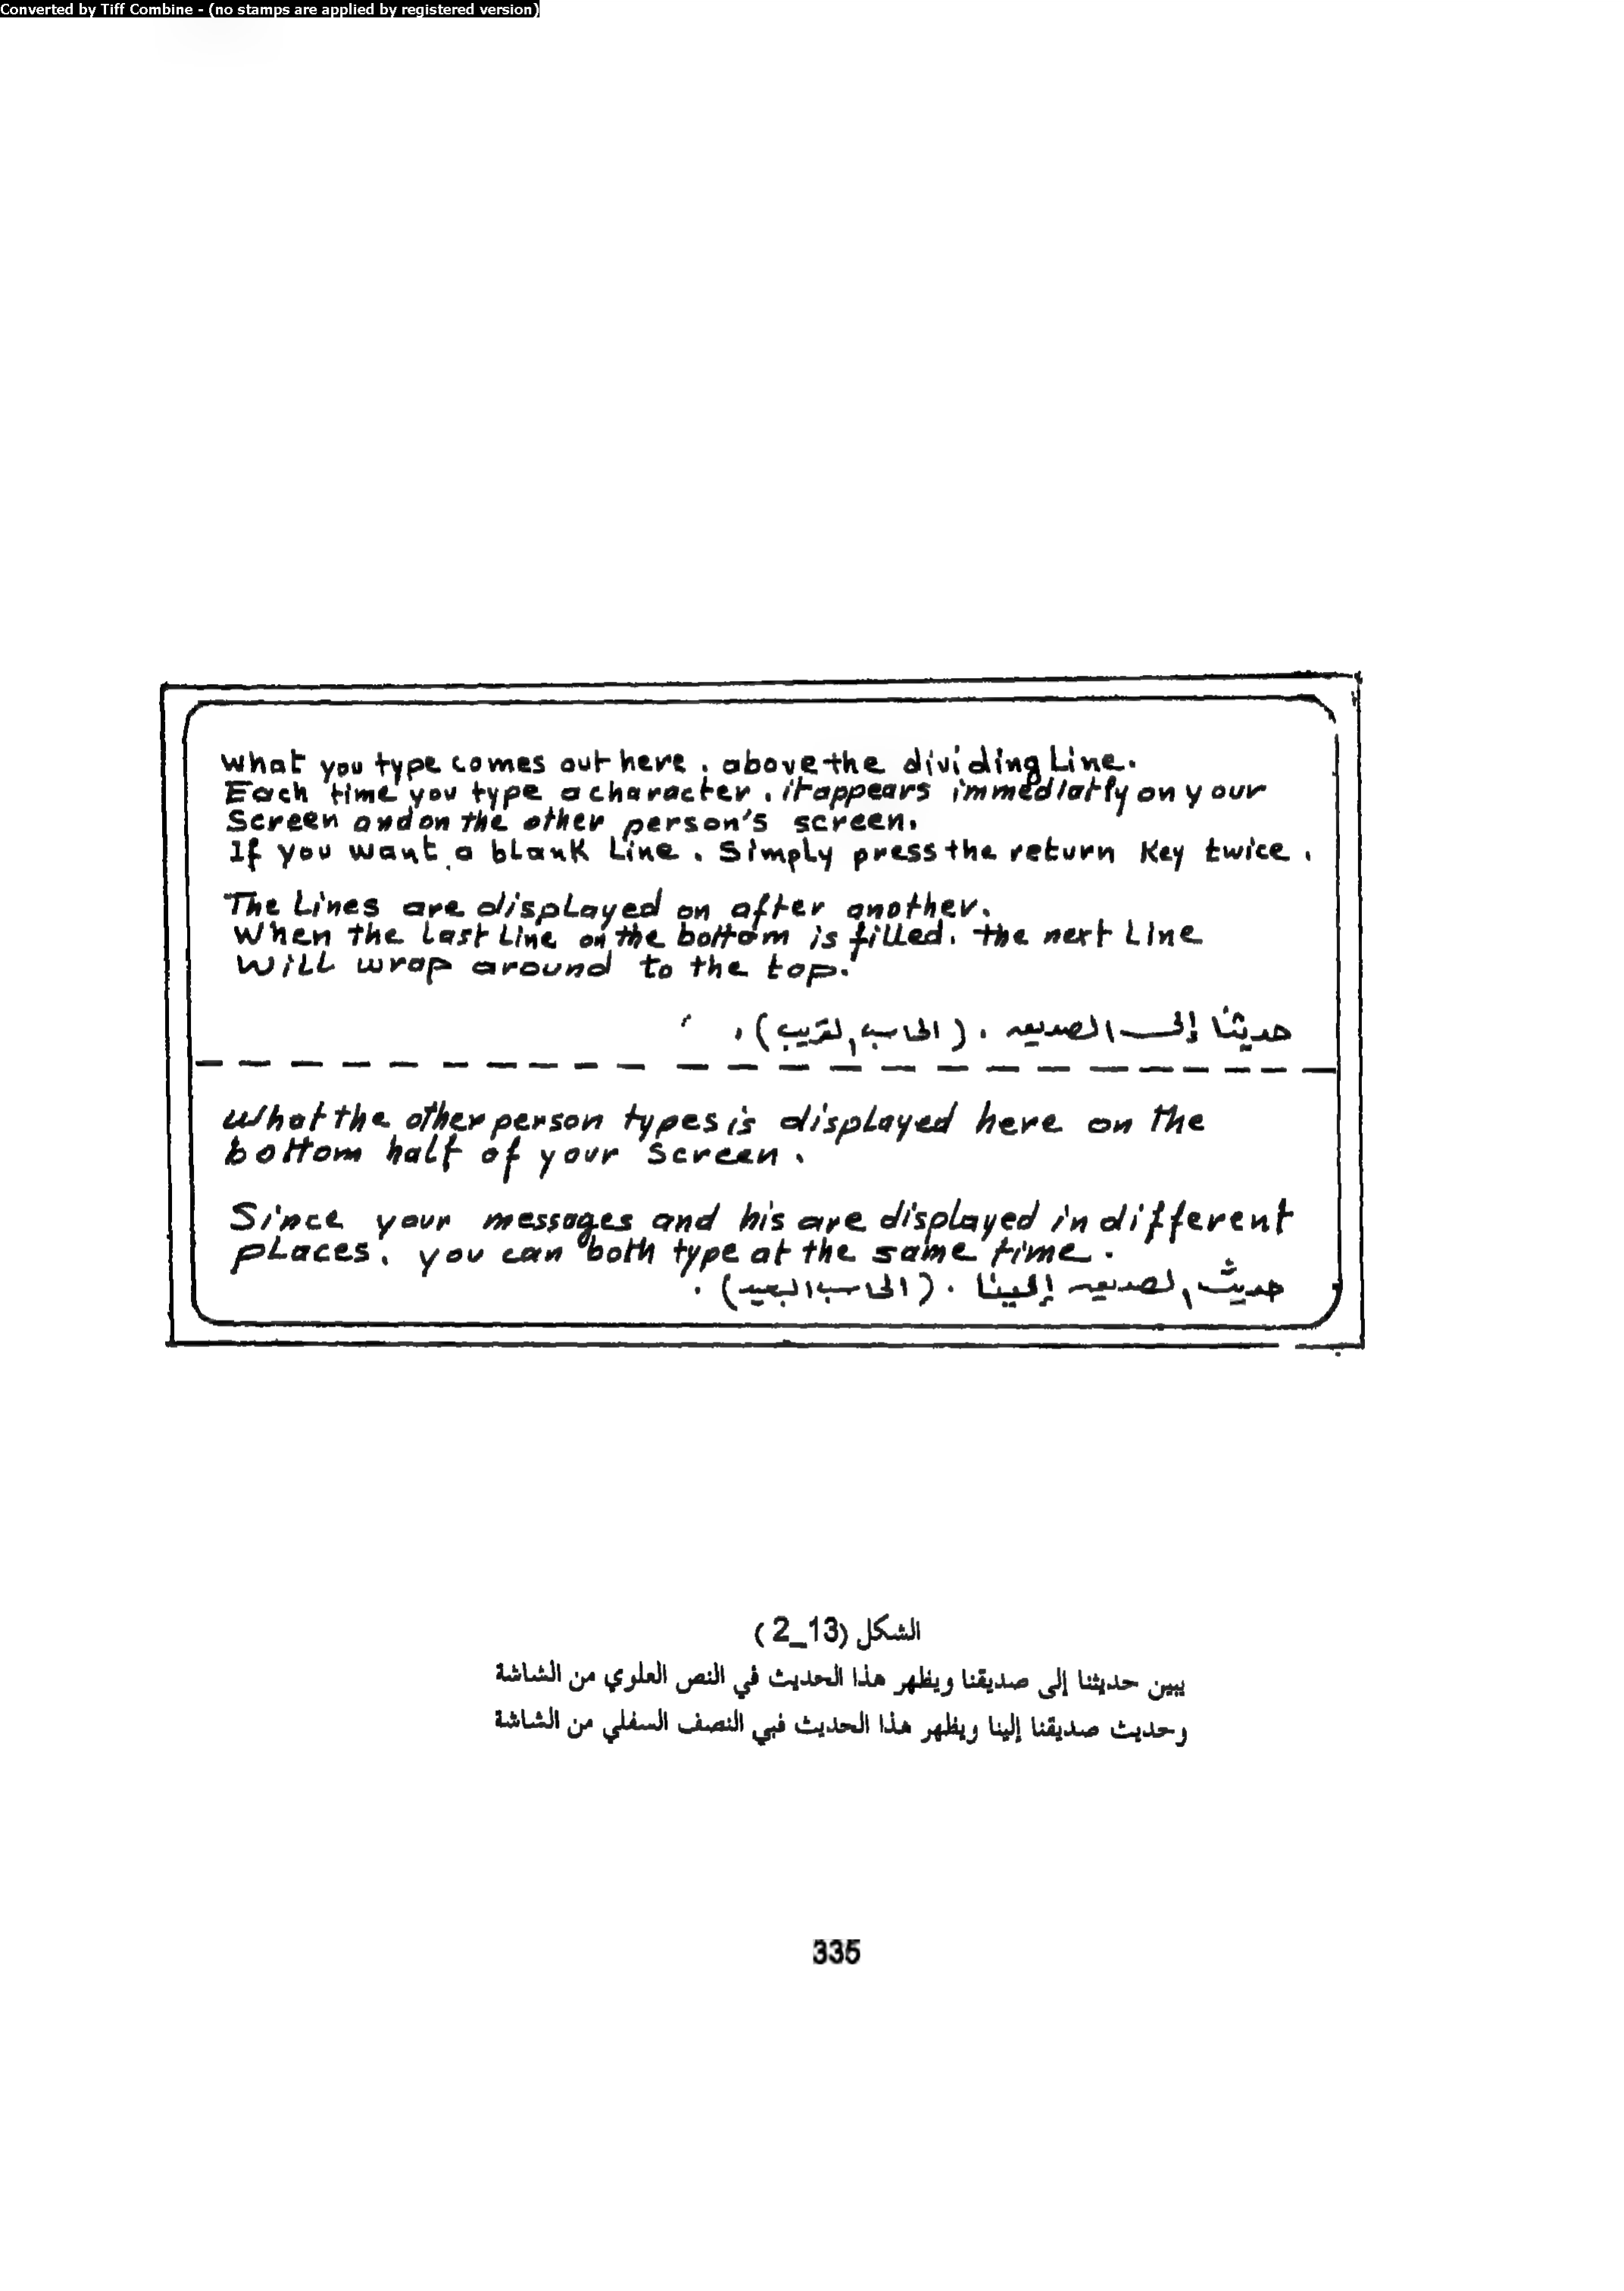 Converted by Tiff Combine - (no stamps are applied by registered version)
What you type comes out here. above the dividing Line.
Each time you type a character. it appears immediatly on your
Screen and on the other person's screen.
If you want a blank Line. Simply press the return Key twice.
The Lines are displayed on after another.
When the last Line on the bottom is filled. the next Line
Will wrap around to the top.
حديثنا إلى الصديق. (الحاسب القريب).
What the other person types is displayed here on the
bottom half of your screen.
Since your messages and his are displayed in different
places. you can both type at the same time.
حديث الصديق إلينا. (الحاسب البعيد).
الشكل (13_2)
يبين حديثنا إلى صديقنا ويظهر هذا الحديث في النص العلوي من الشاشة
وحديث صديقنا إلينا ويظهر هذا الحديث فبي النصف السفلي من الشاشة
335